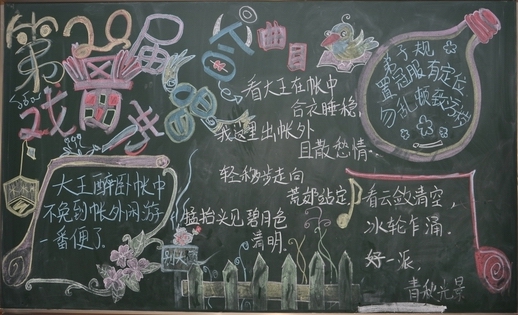 第29届
戏曹
曲目
看大王在帐中
合衣睡稳，
我这里出帐外
且散愁情.
轻移步走向
荒郊站定，
猛抬头见碧月色
清明.
大王醉卧帐中
不免到帐外闲游
一番便了.
弟子规
置冠服有定位
勿乱顿致污秽
看云敛青空，
冰轮乍涌.
好一派，
青秋光景